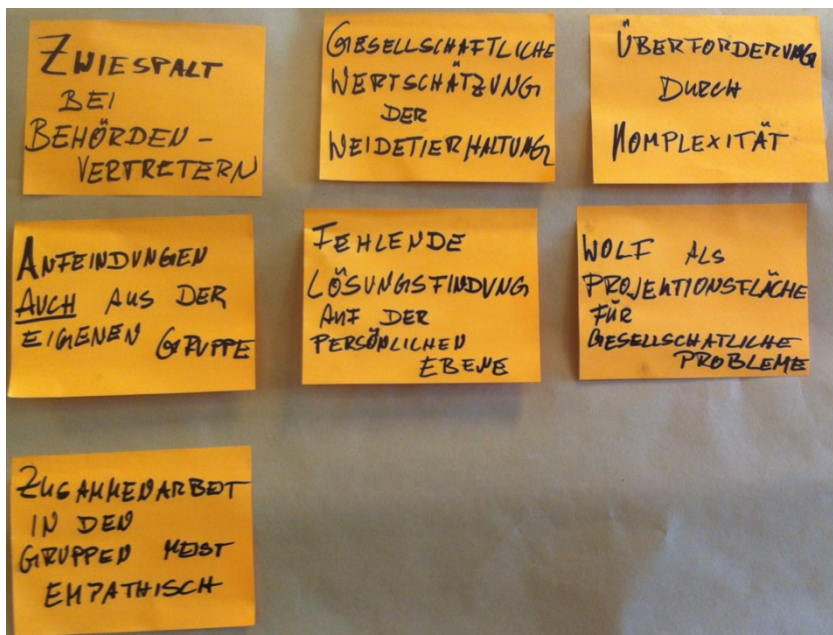 ZWIESPALT
BEI
BEHÖRDEN-
VERTRETERN
GESELLSCHAFTLICHE
WERTSCHÄTZUNG
DER
WEIDETIERHALTUNG
ÜBERFORDERUNG
DURCH
KOMPLEXITÄT
ANFEINDUNGEN
AUCH AUS DER
EIGENEN GRUPPE
FEHLENDE
LÖSUNGSFINDUNG
AUF DER
PERSÖNLICHEN
EBENE
WOLF ALS
PROJEKTIONSFLÄCHE
FÜR
GESELLSCHATLICHE
PROBLEME
ZUSAMMENARBEIT
IN DEN
GRUPPEN MEIST
EMPATHISCH